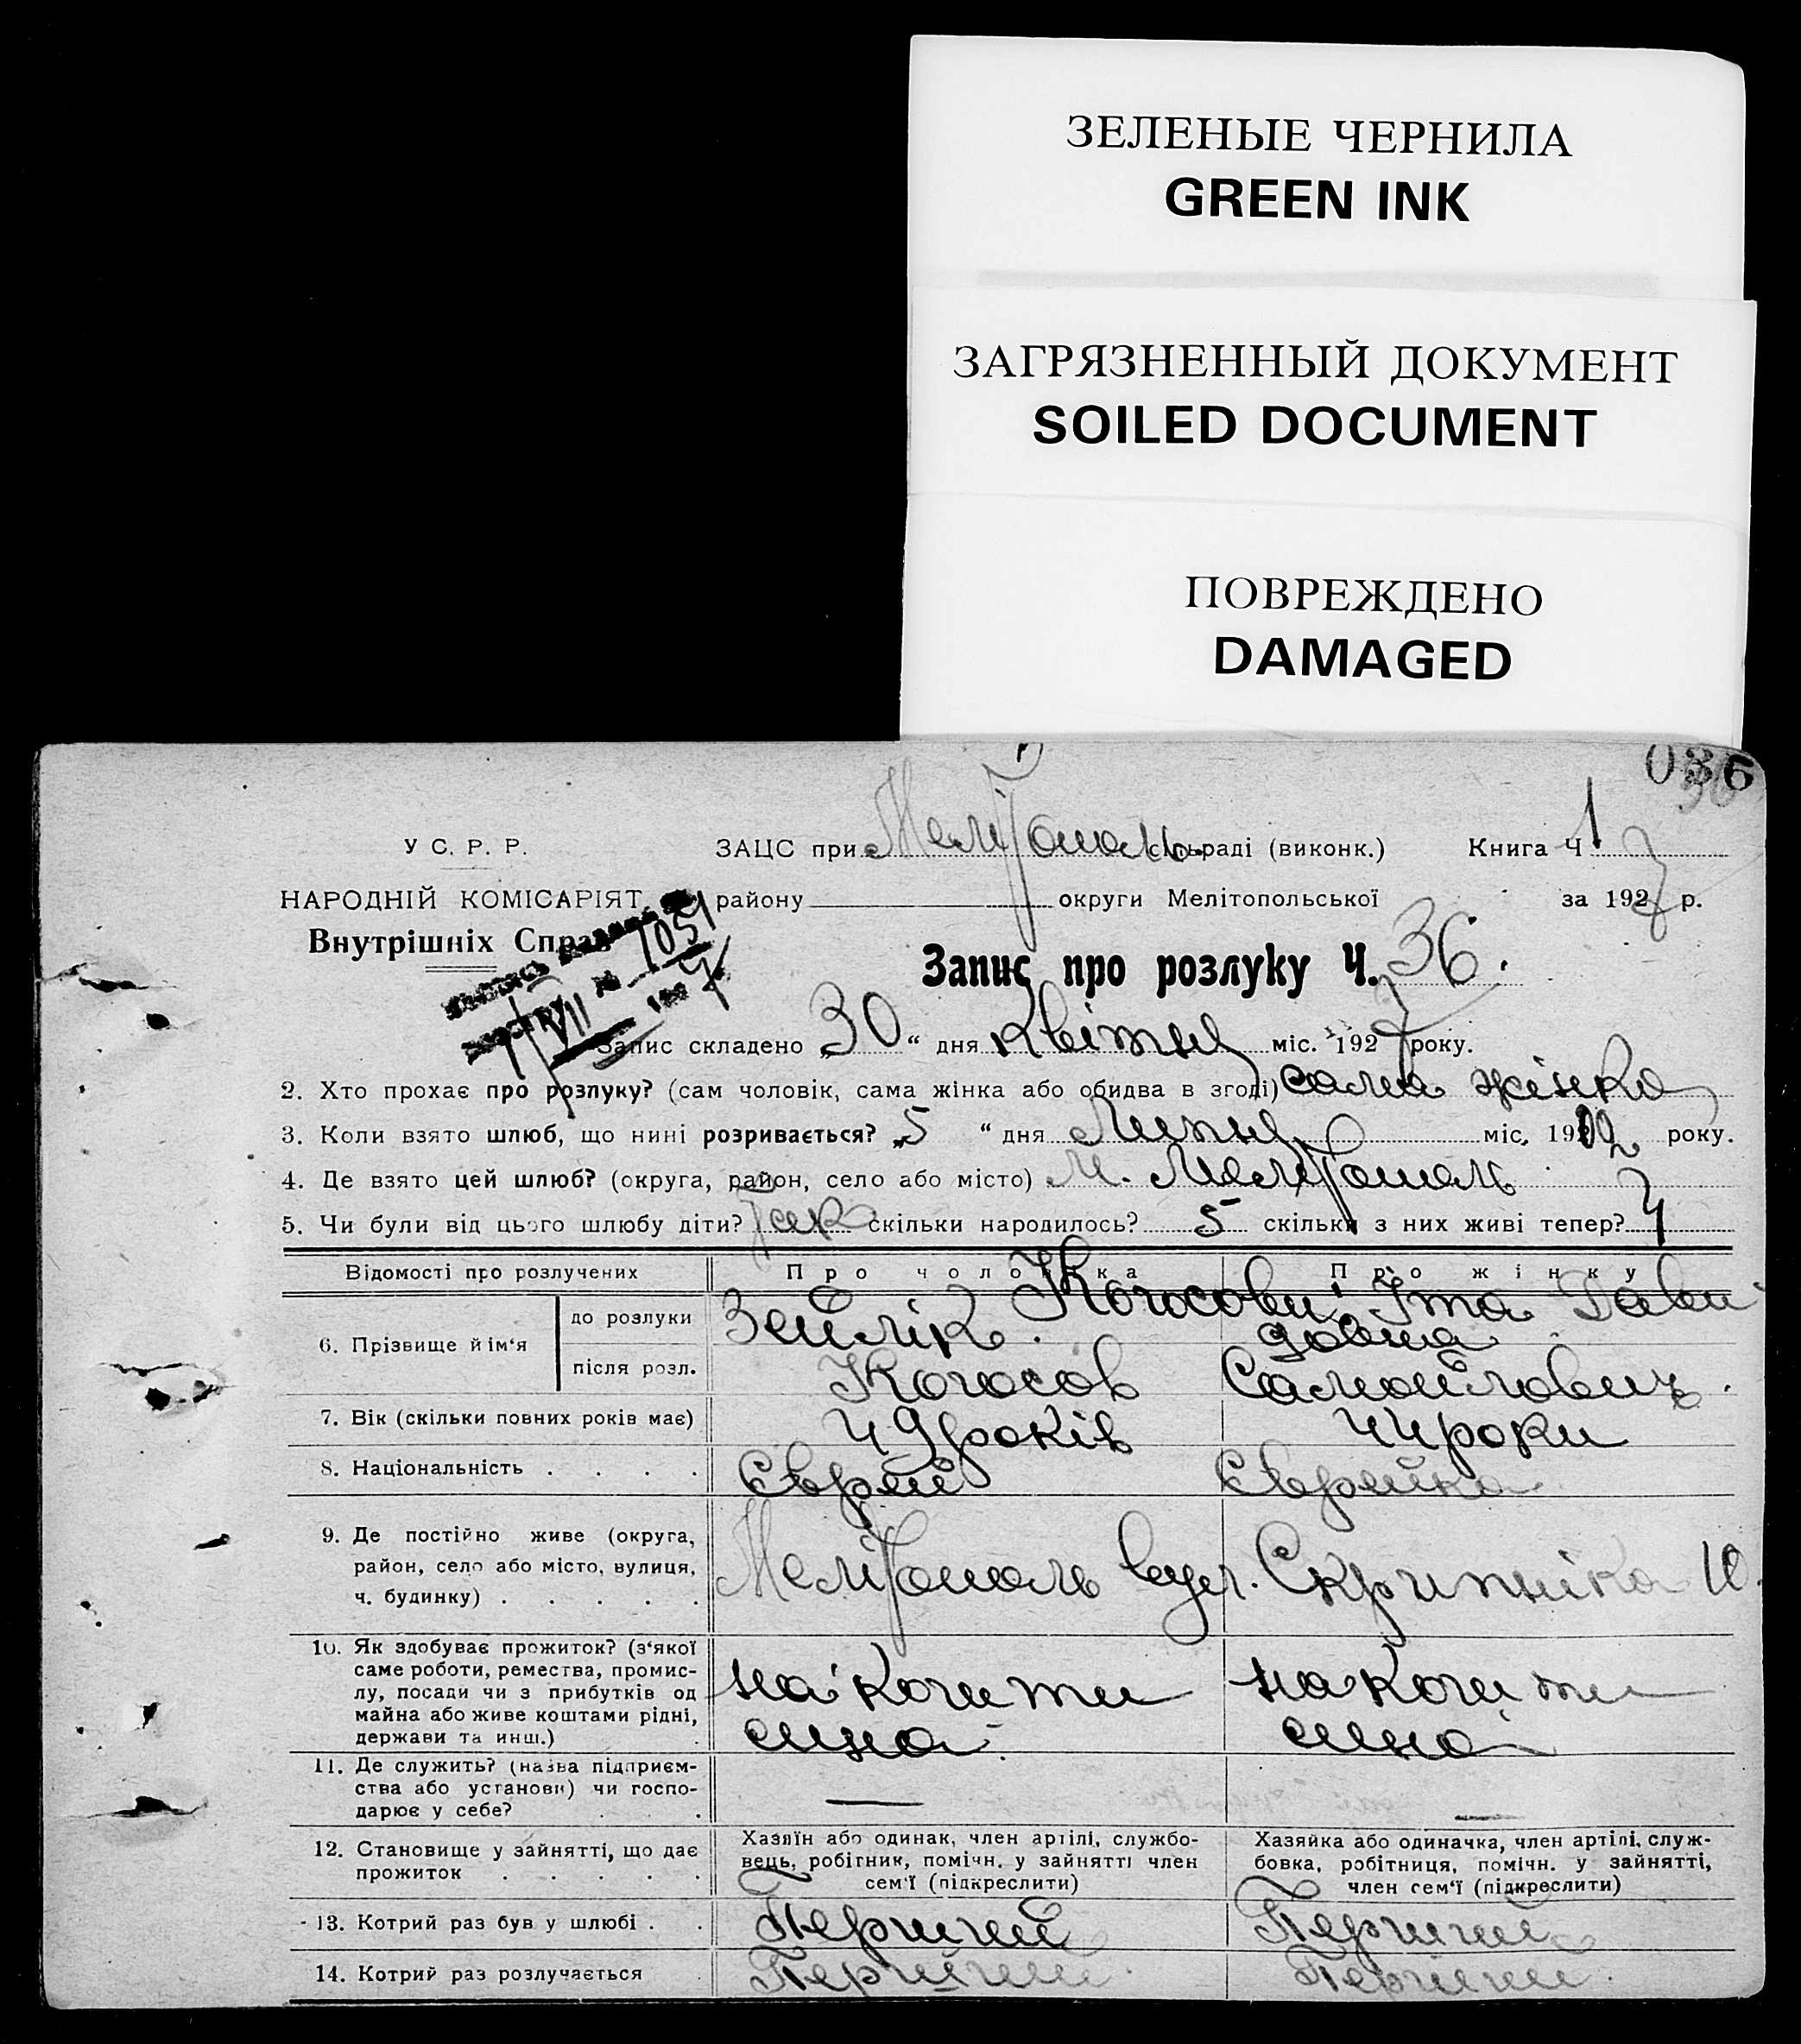 ЗЕЛЕНЫЕ ЧЕРНИЛА
GREEN INK
ЗАГРЯЗНЕННЫЙ ДОКУМЕНТ
SOILED DOCUMENT
ПОВРЕЖДЕНО
DAMAGED
036
У С. Р. Р. ЗАЦС при Мелітополь сільраді (виконк.) Книга Ч 1
НАРОДНІЙ КОМІСАРІЯТ району округи Мелітопольської за 1927 р.
Внутрішніх Справ
1051
VII
Запис про розлуку Ч. 36.
Запис складено „30“ дня Квітня міс. 1927 року.
2. Хто прохає про розлуку? (сам чоловік, сама жінка або обидва в згоді) сама жінка
3. Коли взято шлюб, що нині розривається? „5“ дня Липня міс. 1902 року.
4. Де взято цей шлюб? (округа, район, село або місто) м. Мелітополь
5. Чи були від цього шлюбу діти? Так скільки народилось? 5 скільки з них живі тепер? 4
Відомості про розлучених Про чоловіка Про жінку
6. Прізвище й ім‘я
до розлуки Зеилік Когосови Іта Дави
довна
після розл. Когосов Самойлович.
7. Вік (скільки повних років має) 49 років 44 роки
8. Національність . . . . Єврей Єврейка
9. Де постійно живе (округа, район, село або місто, вулиця, ч. будинку) . . . . . Мелітополь вул. Скрипніка 10.
10. Як здобуває прожиток? (з‘якої
саме роботи, ремества, промис-
лу, посади чи з прибутків од
майна або живе коштами рідні,
держави та инш.)
на кошти на кошти
сина. сина
11. Де служить? (назва підприєм-
ства або установи) чи госпо-
дарює у себе? . . .
12. Становище у зайнятті, що дає
прожиток . . . . .
Хазяїн або одинак, член артілі, службо-
вець, робітник, помічн. у зайнятті член
сем‘ї (підкреслити)
Хазяйка або одиначка, член артілі, служ-
бовка, робітниця, помічн. у зайнятті,
член сем‘ї (підкреслити)
13. Котрий раз був у шлюбі . . Перший Перший
14. Котрий раз розлучається Перший Перший.